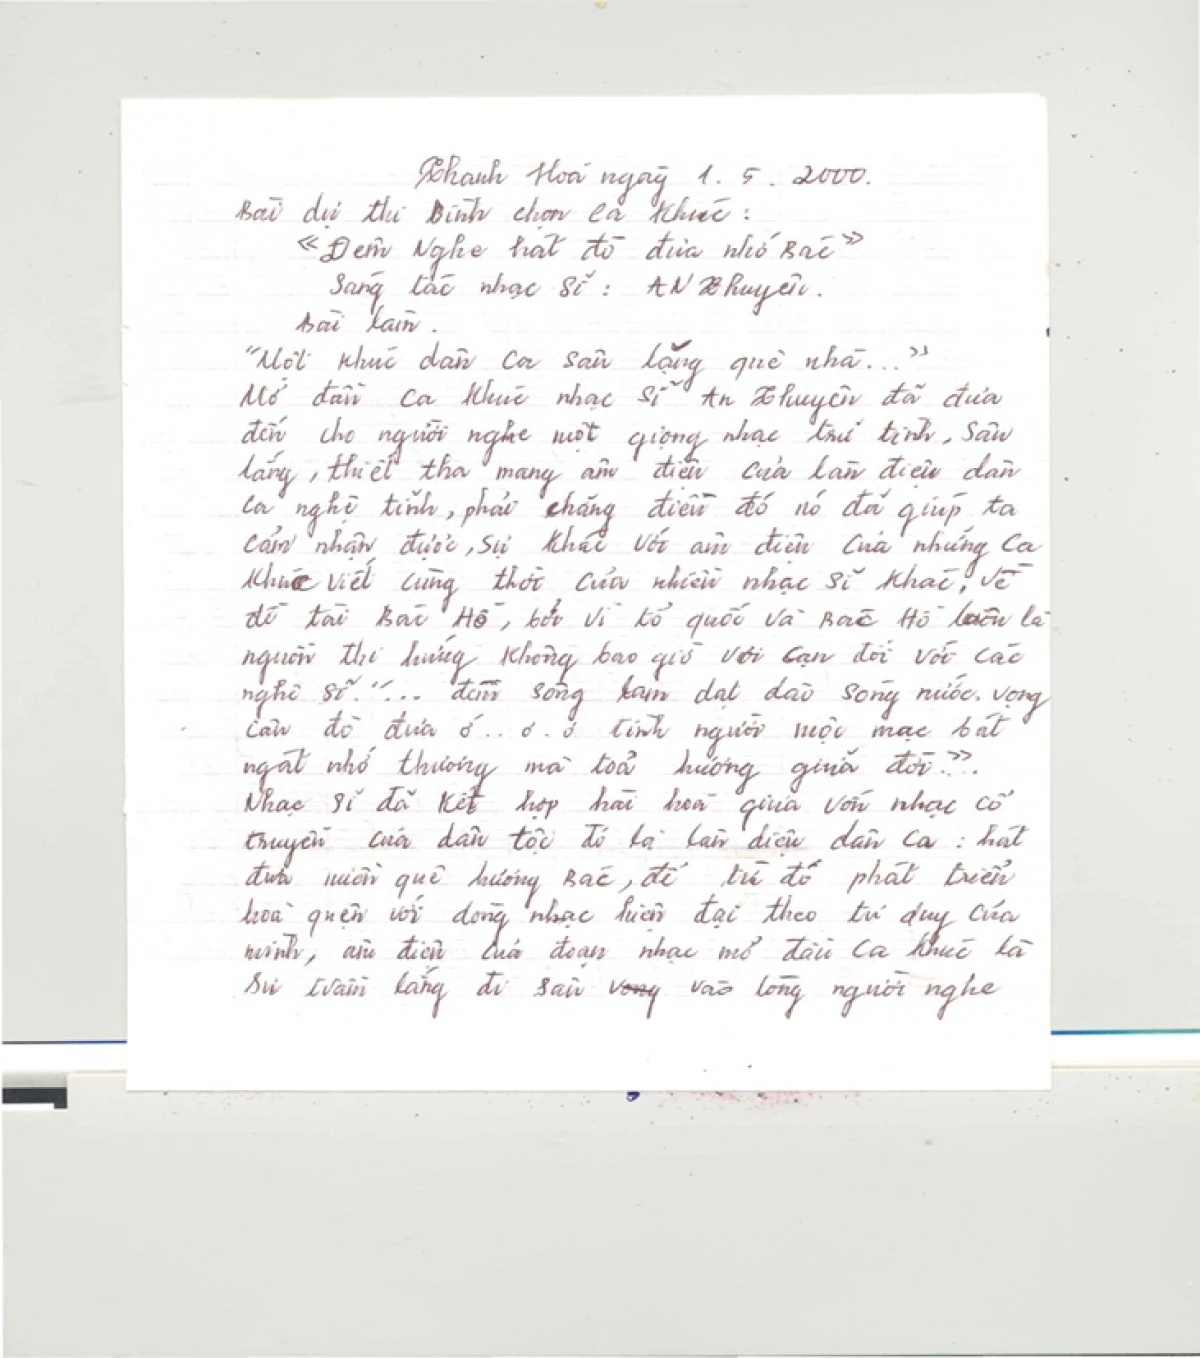 Thanh Hoá ngày 1.5.2000.
Bài dự thi Bình chọn ca khúc:
«Đêm Nghe hát đò đưa nhớ Bác»
Sáng tác nhạc sĩ: AN Thuyên.
Bài làm.
"Một khúc dân ca sâu lặng quê nhà..."
Mở đầu ca khúc nhạc sĩ An Thuyên đã đưa
đến cho người nghe một giọng nhạc trữ tình, sâu
lắng, thiết tha mang âm điệu của làn điệu dân
ca nghệ tĩnh, phải chăng điều đó nó đã giúp ta
cảm nhận được, sự khác với âm điệu của những ca
khúc viết cùng thời của nhiều nhạc sĩ khác, về
đề tài Bác Hồ, bởi vì tổ quốc và Bác Hồ luôn là
nguồn thi hứng không bao giờ vơi cạn đối với các
nghệ sĩ. "... đêm sông lam dạt dào sóng nước. vọng
câu đò đưa ớ.. ơ. ơ tình người mộc mạc bát
ngát nhớ thương mà toả hương giữa đời...».
Nhạc sĩ đã kết hợp hài hoà giữa vốn nhạc cổ
truyền của dân tộc đó là làn điệu dân ca: hát
đưa miền quê hương Bác, để từ đó phát triển
hoà quện với dòng nhạc hiện đại theo tư duy của
mình, âm điệu của đoạn nhạc mở đầu ca khúc là
sự trầm lắng đi sâu vào lòng người nghe